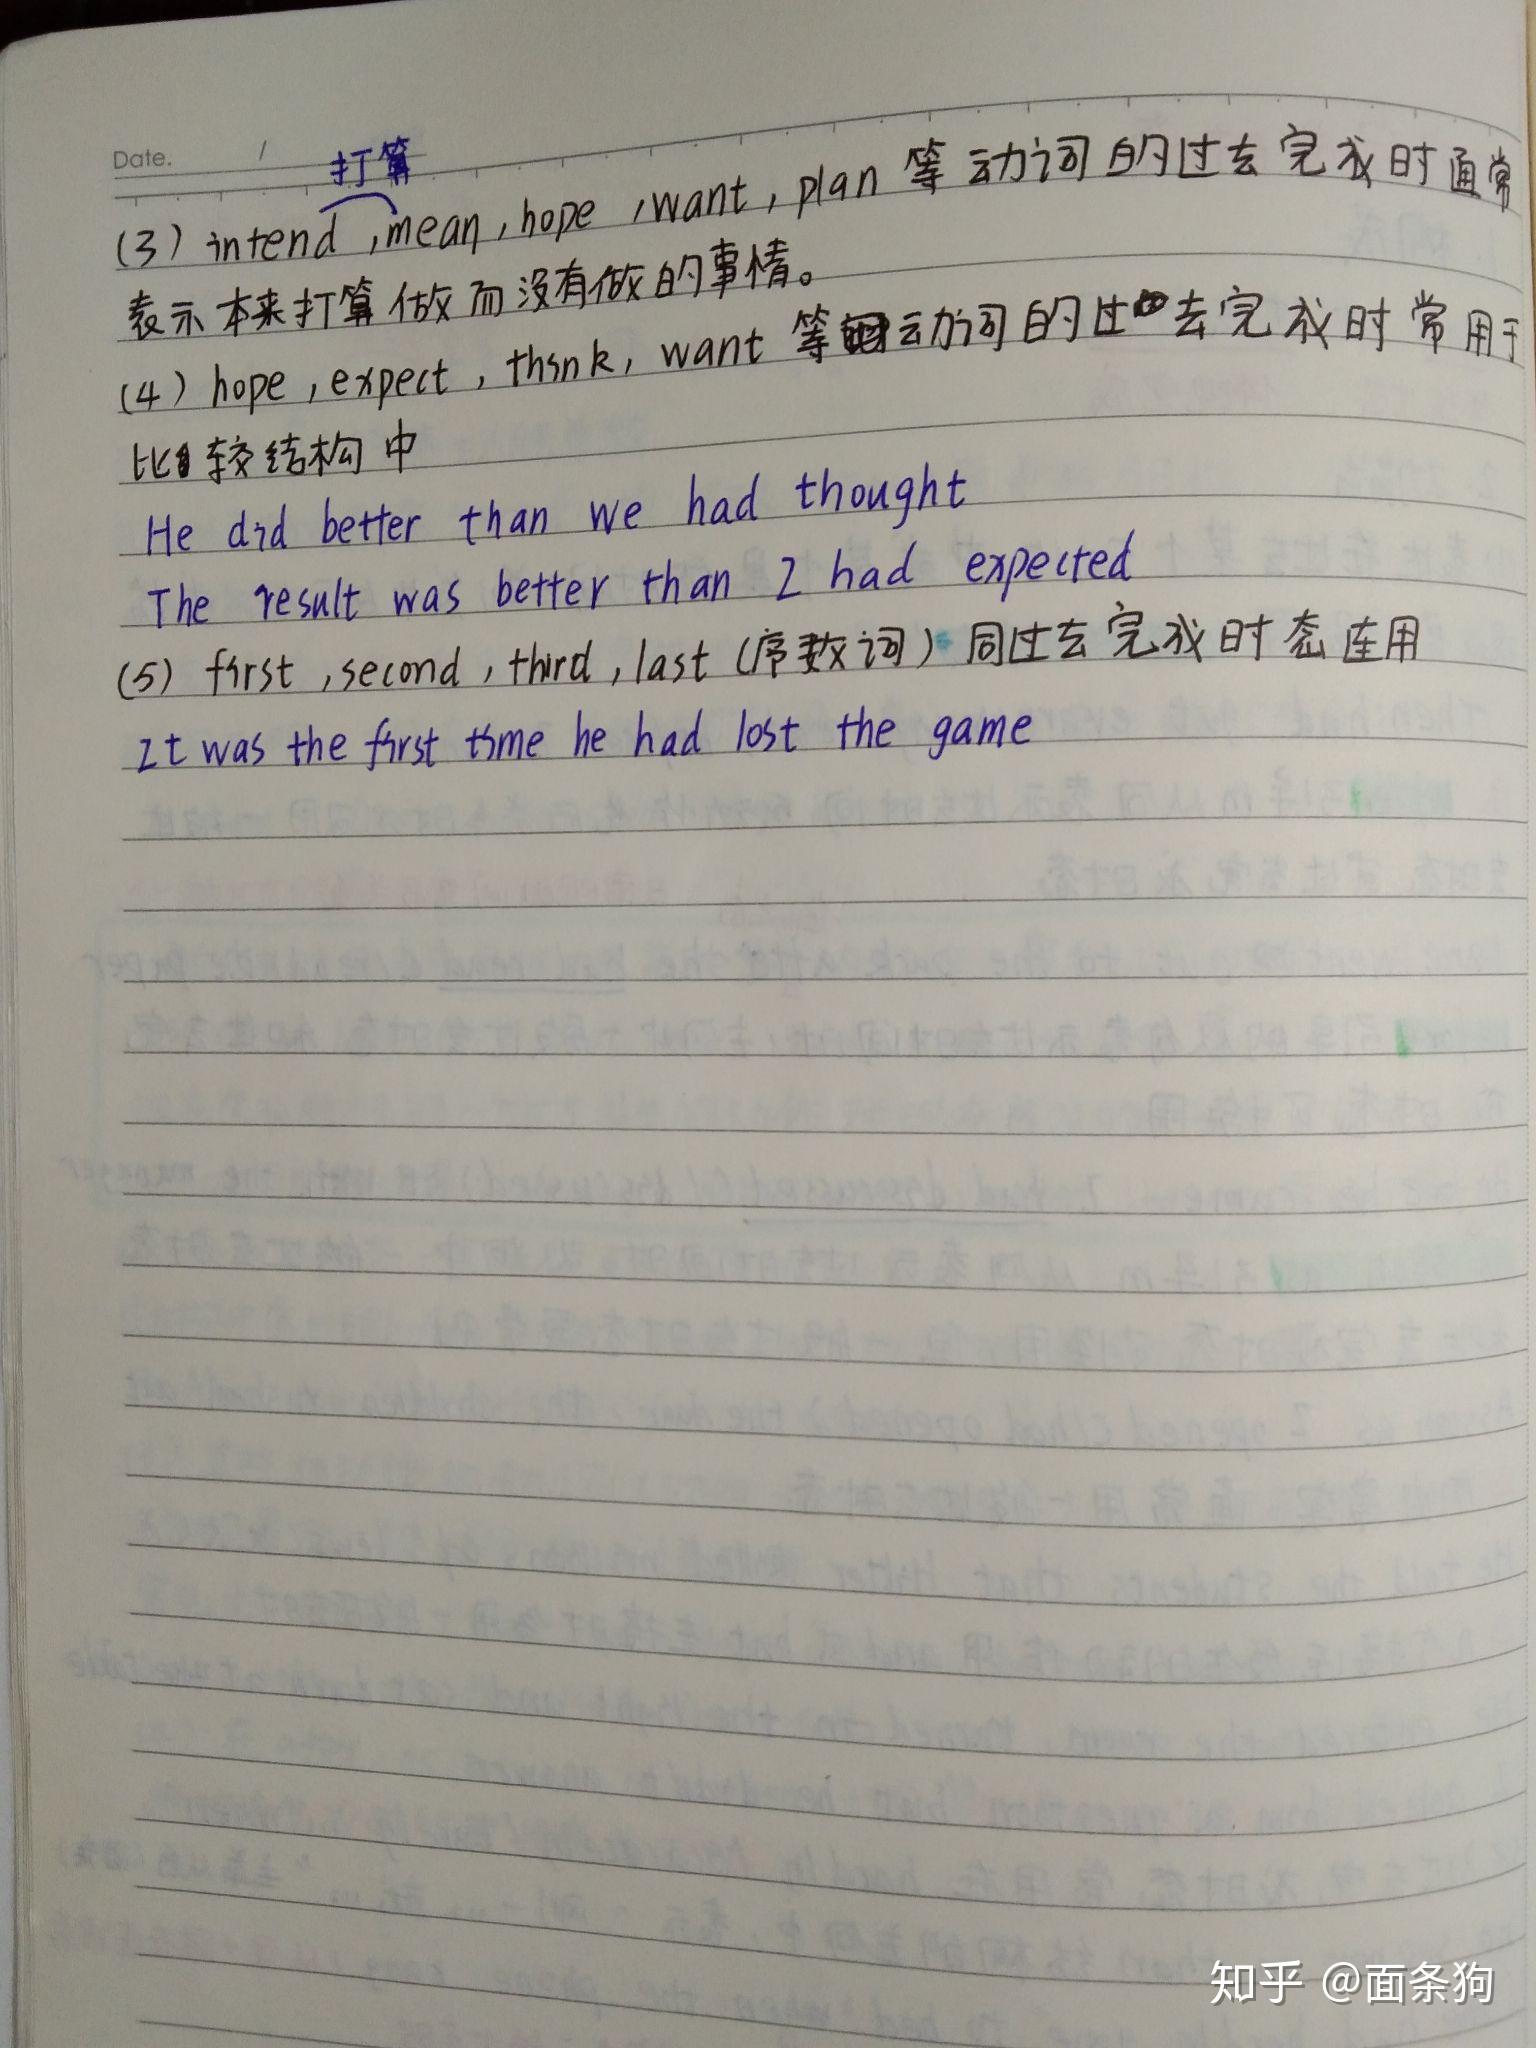 Date. /
打算
(3) intend, mean, hope, want, plan 等动词的过去完成时通常
表示本来打算做而没有做的事情。
(4) hope, expect, think, want 等动词的过去完成时常用于
比较结构中
He did better than we had thought
The result was better than I had expected
(5) first, second, third, last (序数词) 同过去完成时态连用
It was the first time he had lost the game
知乎 @面条狗